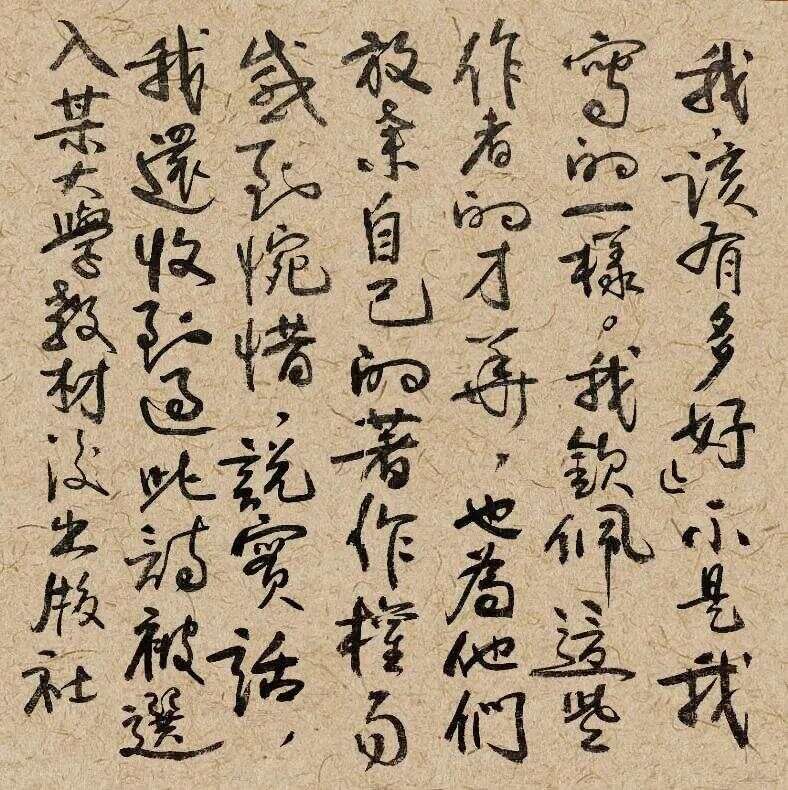 我該有多好」不是我
寫的一樣。我欽佩這些
作者的才華，也為他們
放弃自己的著作權而
感到惋惜，說實話，
我還收到過此詩被選
入某大學教材後出版社